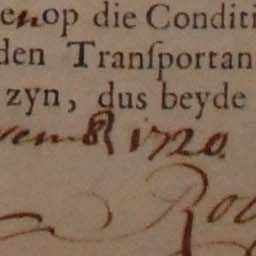 en op die Conditi
den Tranſportan
zyn, dus beyde
vemb 1720.
Ro